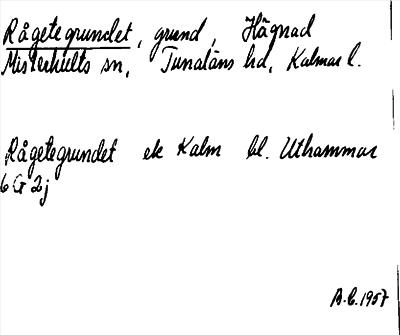 Rågetegrundet, grund, Hägnad
Misterhults sn, Tunaläns hd, Kalmar l.
Rågetegrundet ek Kalm bl. Uthammar
6 G 2j
A.C. 1957